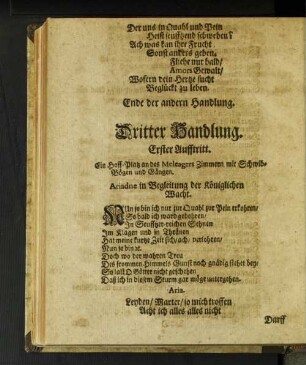 Der uns in Quahl und Pein
Heist seufftzend schweben?
Ach was kan ihre Frucht
Sonst anders geben.
Fliehe nur bald/
Amors Gewalt/
Wofern dein Hertze sucht
Beglückt zu leben.
Ende der andern Handlung.
Dritter Handlung.
Erster Aufftritt.
Ein Hoff-Platz an des Meleagers Zimmern mit Schwib-
Bögen und Gängen.
Ariadne in Begleitung der Königlichen
Wacht.
NUn so bin ich nur zur Quahl zur Pein erkohren/
So bald ich ward gebohren/
In Seufftzer-reichen Sehnen
Im Klagen und in Thränen
Hat meine kurtze Zeit sich verlohren/
Nun
Doch wo der wahren Treu
Des frommen Himmels Gunst noch gnädig stehet bey/
So last O Götter nicht geschehen
Daß ich in diesem Sturm gar möge untergehen.
Aria.
Leyden/ Marter/ so mich troffen
Acht ich alles alles nicht
Darff